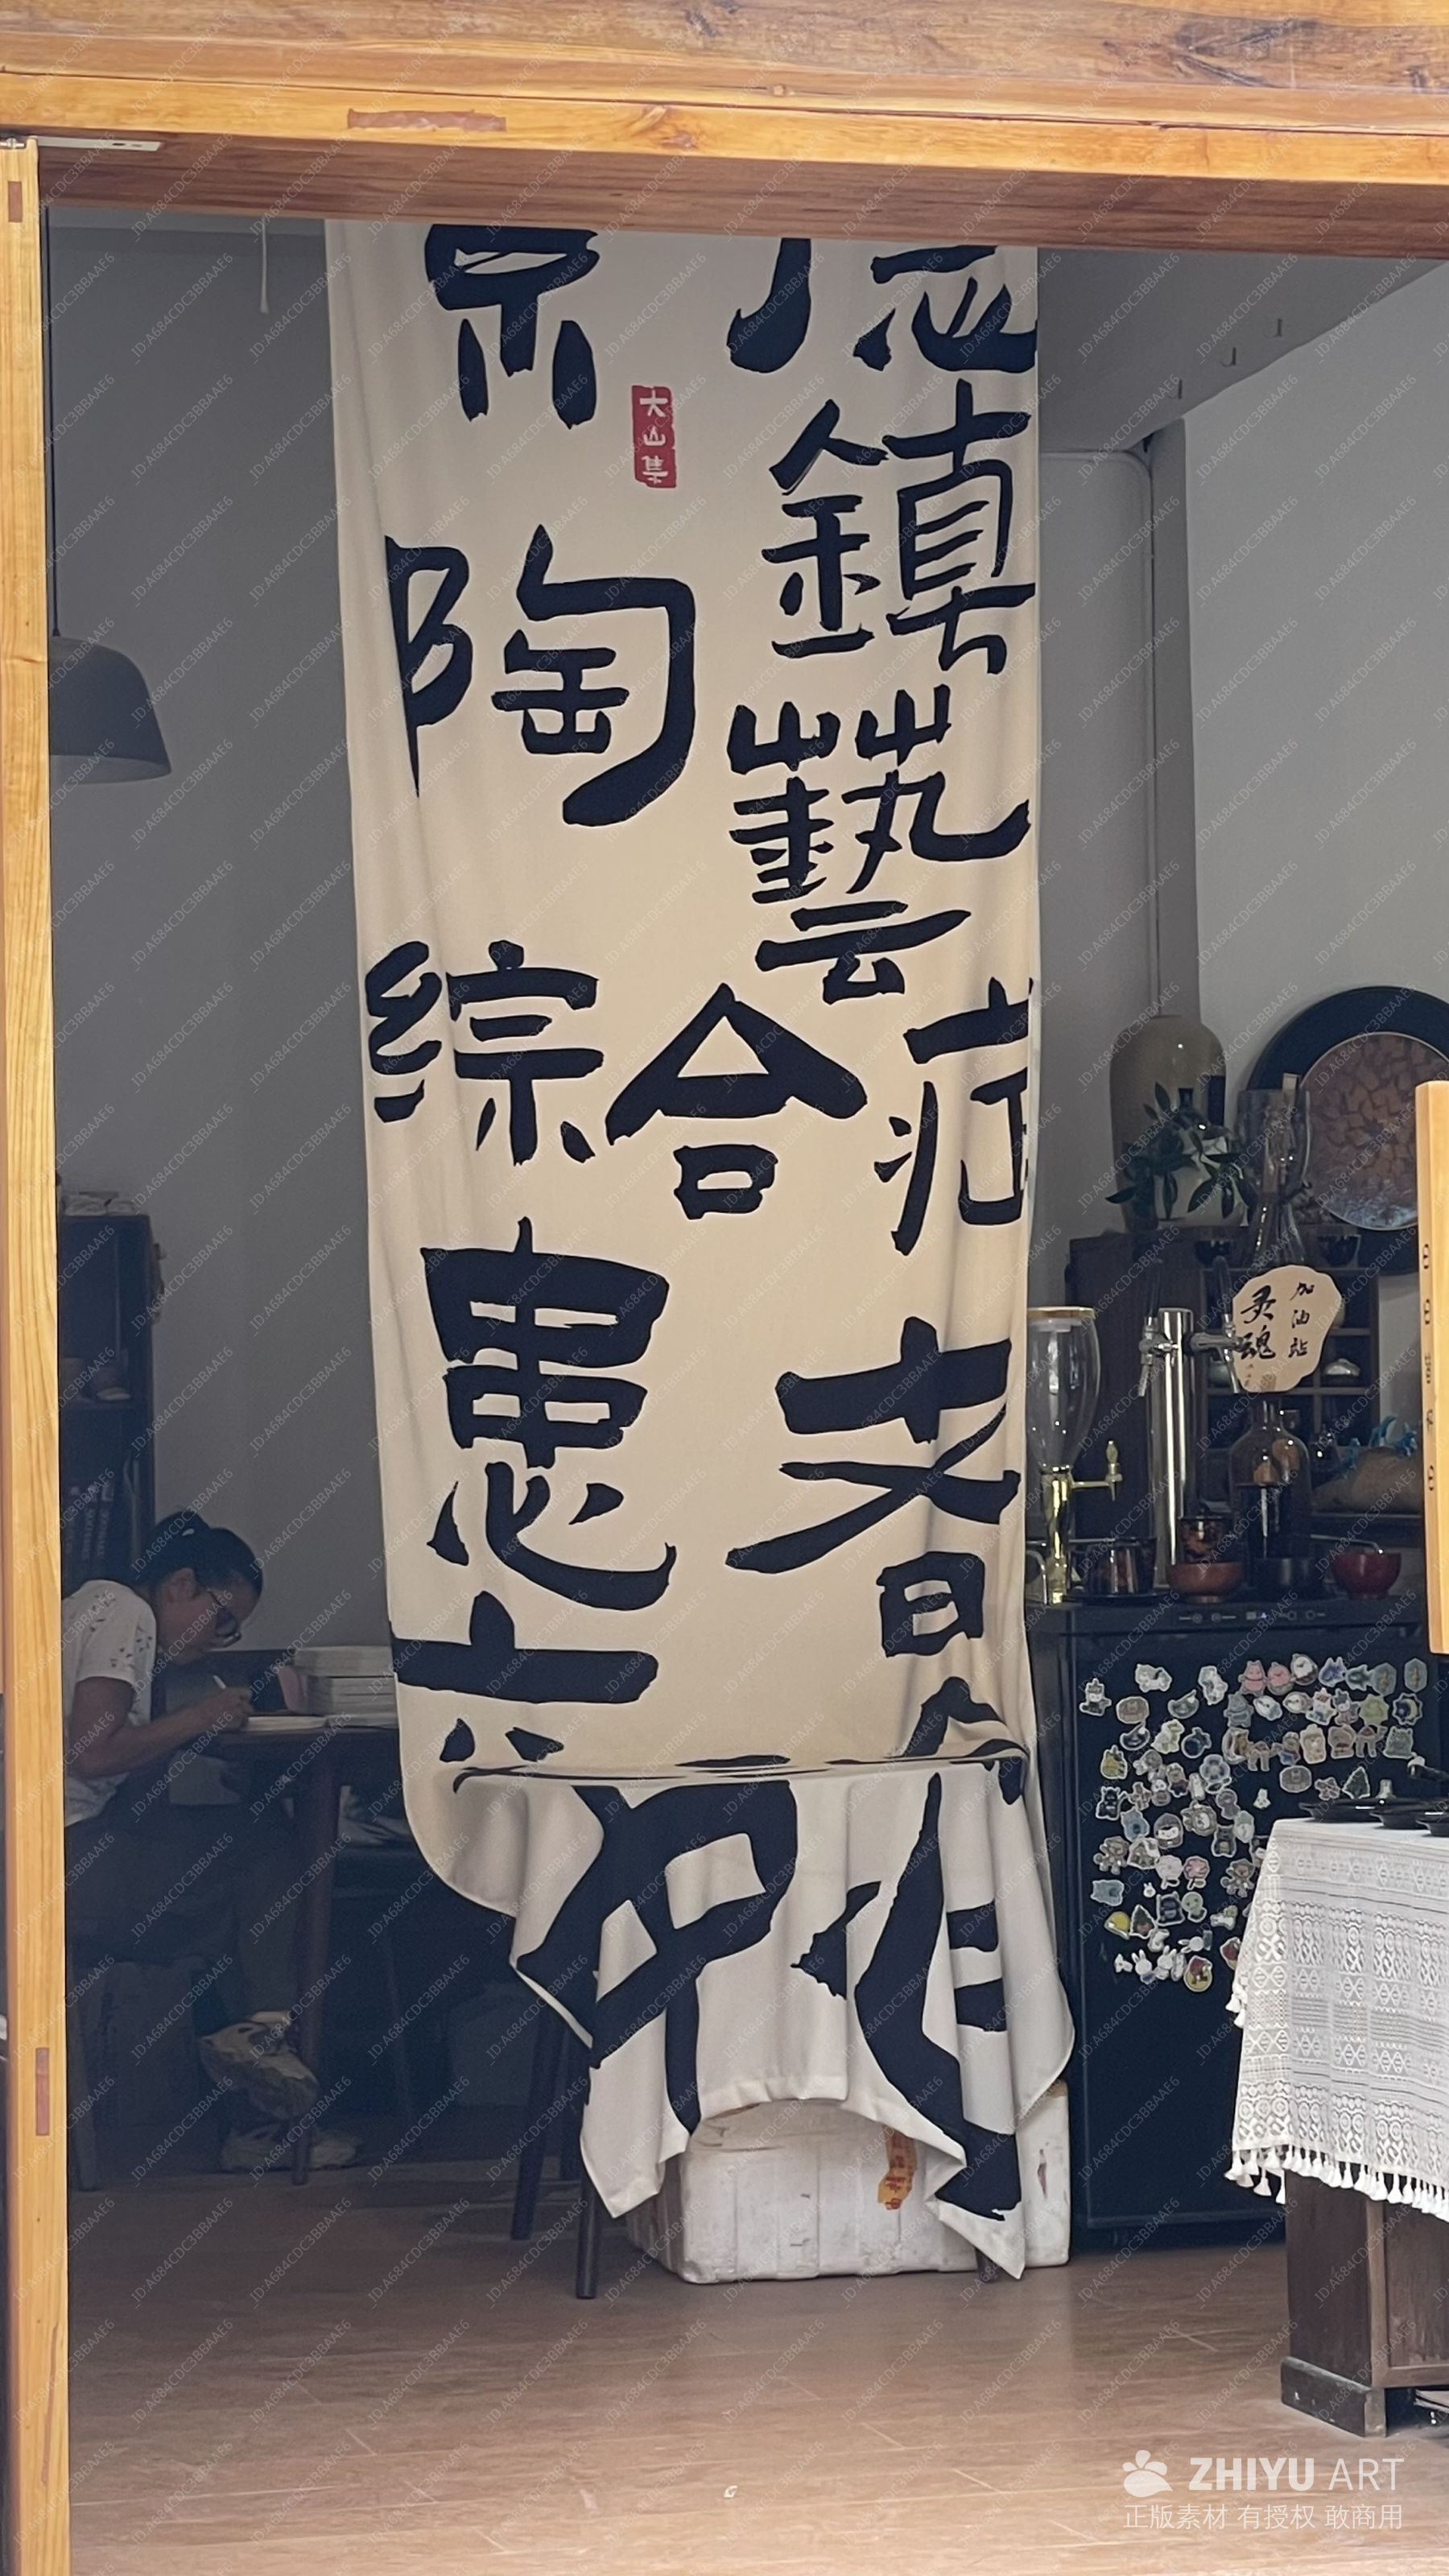 景 德
鎮
陶 藝
綜合症
患者
大山集
加油站
灵魂
ZHIYU ART
正版素材 有授权 敢商用
ID:A684CDC3BBAAE6